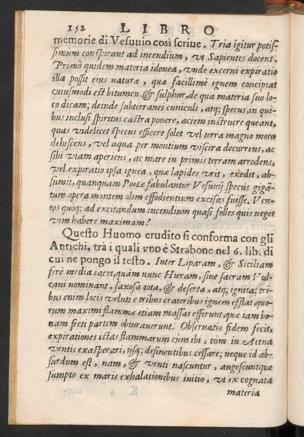 152 LIBRO
memorie di Vesuuio così scriue. Tria igitur potis-
simum conspirant ad incendium, vt Sapientes docent.
Primò quidem materia idonea, vnde excerni expiratio
illa possit eius naturæ, quæ facillimè ignem concipiat
cuiusmodi est bitumen, & sulphur, de qua materia suo lo-
co dicam; deinde subterranei cuniculi, atq; specus, in qui-
bus inclusi spiritus castra ponere, aciem instruere queant,
quas videlicet specus efficere solet vel terra magno motu
dehiscens, vel aqua per montium viscera decurrens, ac
sibi viam aperiens, ac mare in primis terram arrodens,
vel expiratio ipsa ignea, quæ lapides vrit, exedit, ab-
sumit, quanquam Poetæ fabulantur Vesuuij specus gigã-
tum opera montem olim effodientium excisas fuisse. Ven-
tus quoq; ad excitandum incendium quasi folles quis neget
vim habere maximam?
Questo Huomo erudito si conforma con gli
Antichi, trà i quali vno è Strabone nel 6. lib. di
cui ne pongo il testo. Inter Liparam, & Siciliam
ferè media iacet, quàm nunc Hieram, siue sacram Vul-
cani nominant, saxosa tota, & deserta, atq; ignita; tri-
bus enim locis veluti e tribus crateribus ignem efflat quo-
rum maximi flammæ etiam massas efferunt quæ iam bo-
nam freti partem obturauerunt. Obseruatio fidem fecit,
expirationes istas flammarum cum ibi, tum in Aetna
ventis exasperari, ijsq; desinentibus cessare; neque id ab-
surdum est, nam, & venti nascuntur, augescuntque
sumpto ex maris exhalationibus initio, vt ex cognata
materia